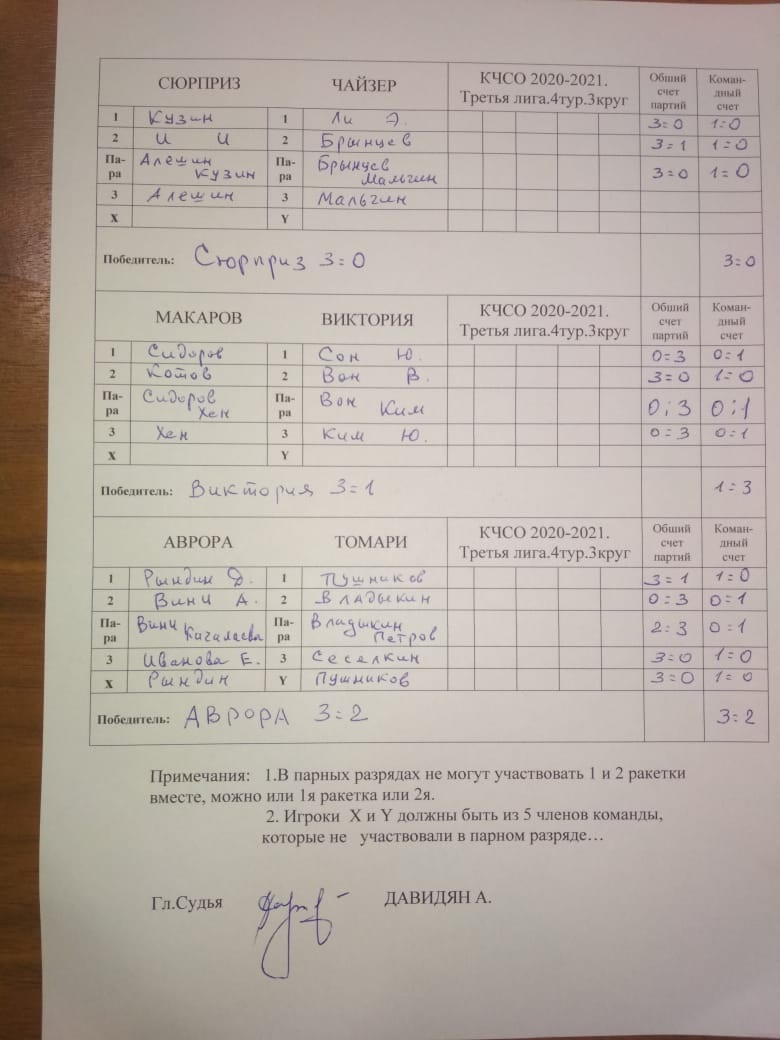 СЮРПРИЗ ЧАЙЗЕР КЧСО 2020-2021. Третья лига.4тур.3круг Общий счет партий Коман-дный счет
1 Кузин 1 Ли Э. 3=0 1=0
2 И И 2 Брынцев 3=1 1=0
Па-ра Алешин Кузин Па-ра Брынцев Мальгин 3=0 1=0
3 Алешин 3 Мальгин
X Y
Победитель: Сюрприз 3=0 3=0
МАКАРОВ ВИКТОРИЯ КЧСО 2020-2021. Третья лига.4тур.3круг Общий счет партий Коман-дный счет
1 Сидоров 1 Сон Ю. 0=3 0=1
2 Котов 2 Вон В. 3=0 1=0
Па-ра Сидоров Хен Па-ра Вон Ким 0:3 0:1
3 Хен 3 Ким Ю. 0=3 0=1
X Y
Победитель: Виктория 3=1 1=3
АВРОРА ТОМАРИ КЧСО 2020-2021. Третья лига.4тур.3круг Общий счет партий Коман-дный счет
1 Рындин Д. 1 Пушников 3=1 1=0
2 Винч А. 2 Владыкин 0=3 0=1
Па-ра Винч Па-ра Владыкин Петров 2:3 0=1
3 Иванова Е. 3 Сеселкин 3=0 1=0
X Рындин Y Пушников 3=0 1=0
Победитель: АВРОРА 3=2 3=2
Примечания: 1.В парных разрядах не могут участвовать 1 и 2 ракетки
вместе, можно или 1я ракетка или 2я.
2. Игроки X и Y должны быть из 5 членов команды,
которые не участвовали в парном разряде…
Гл.Судья ДАВИДЯН А.